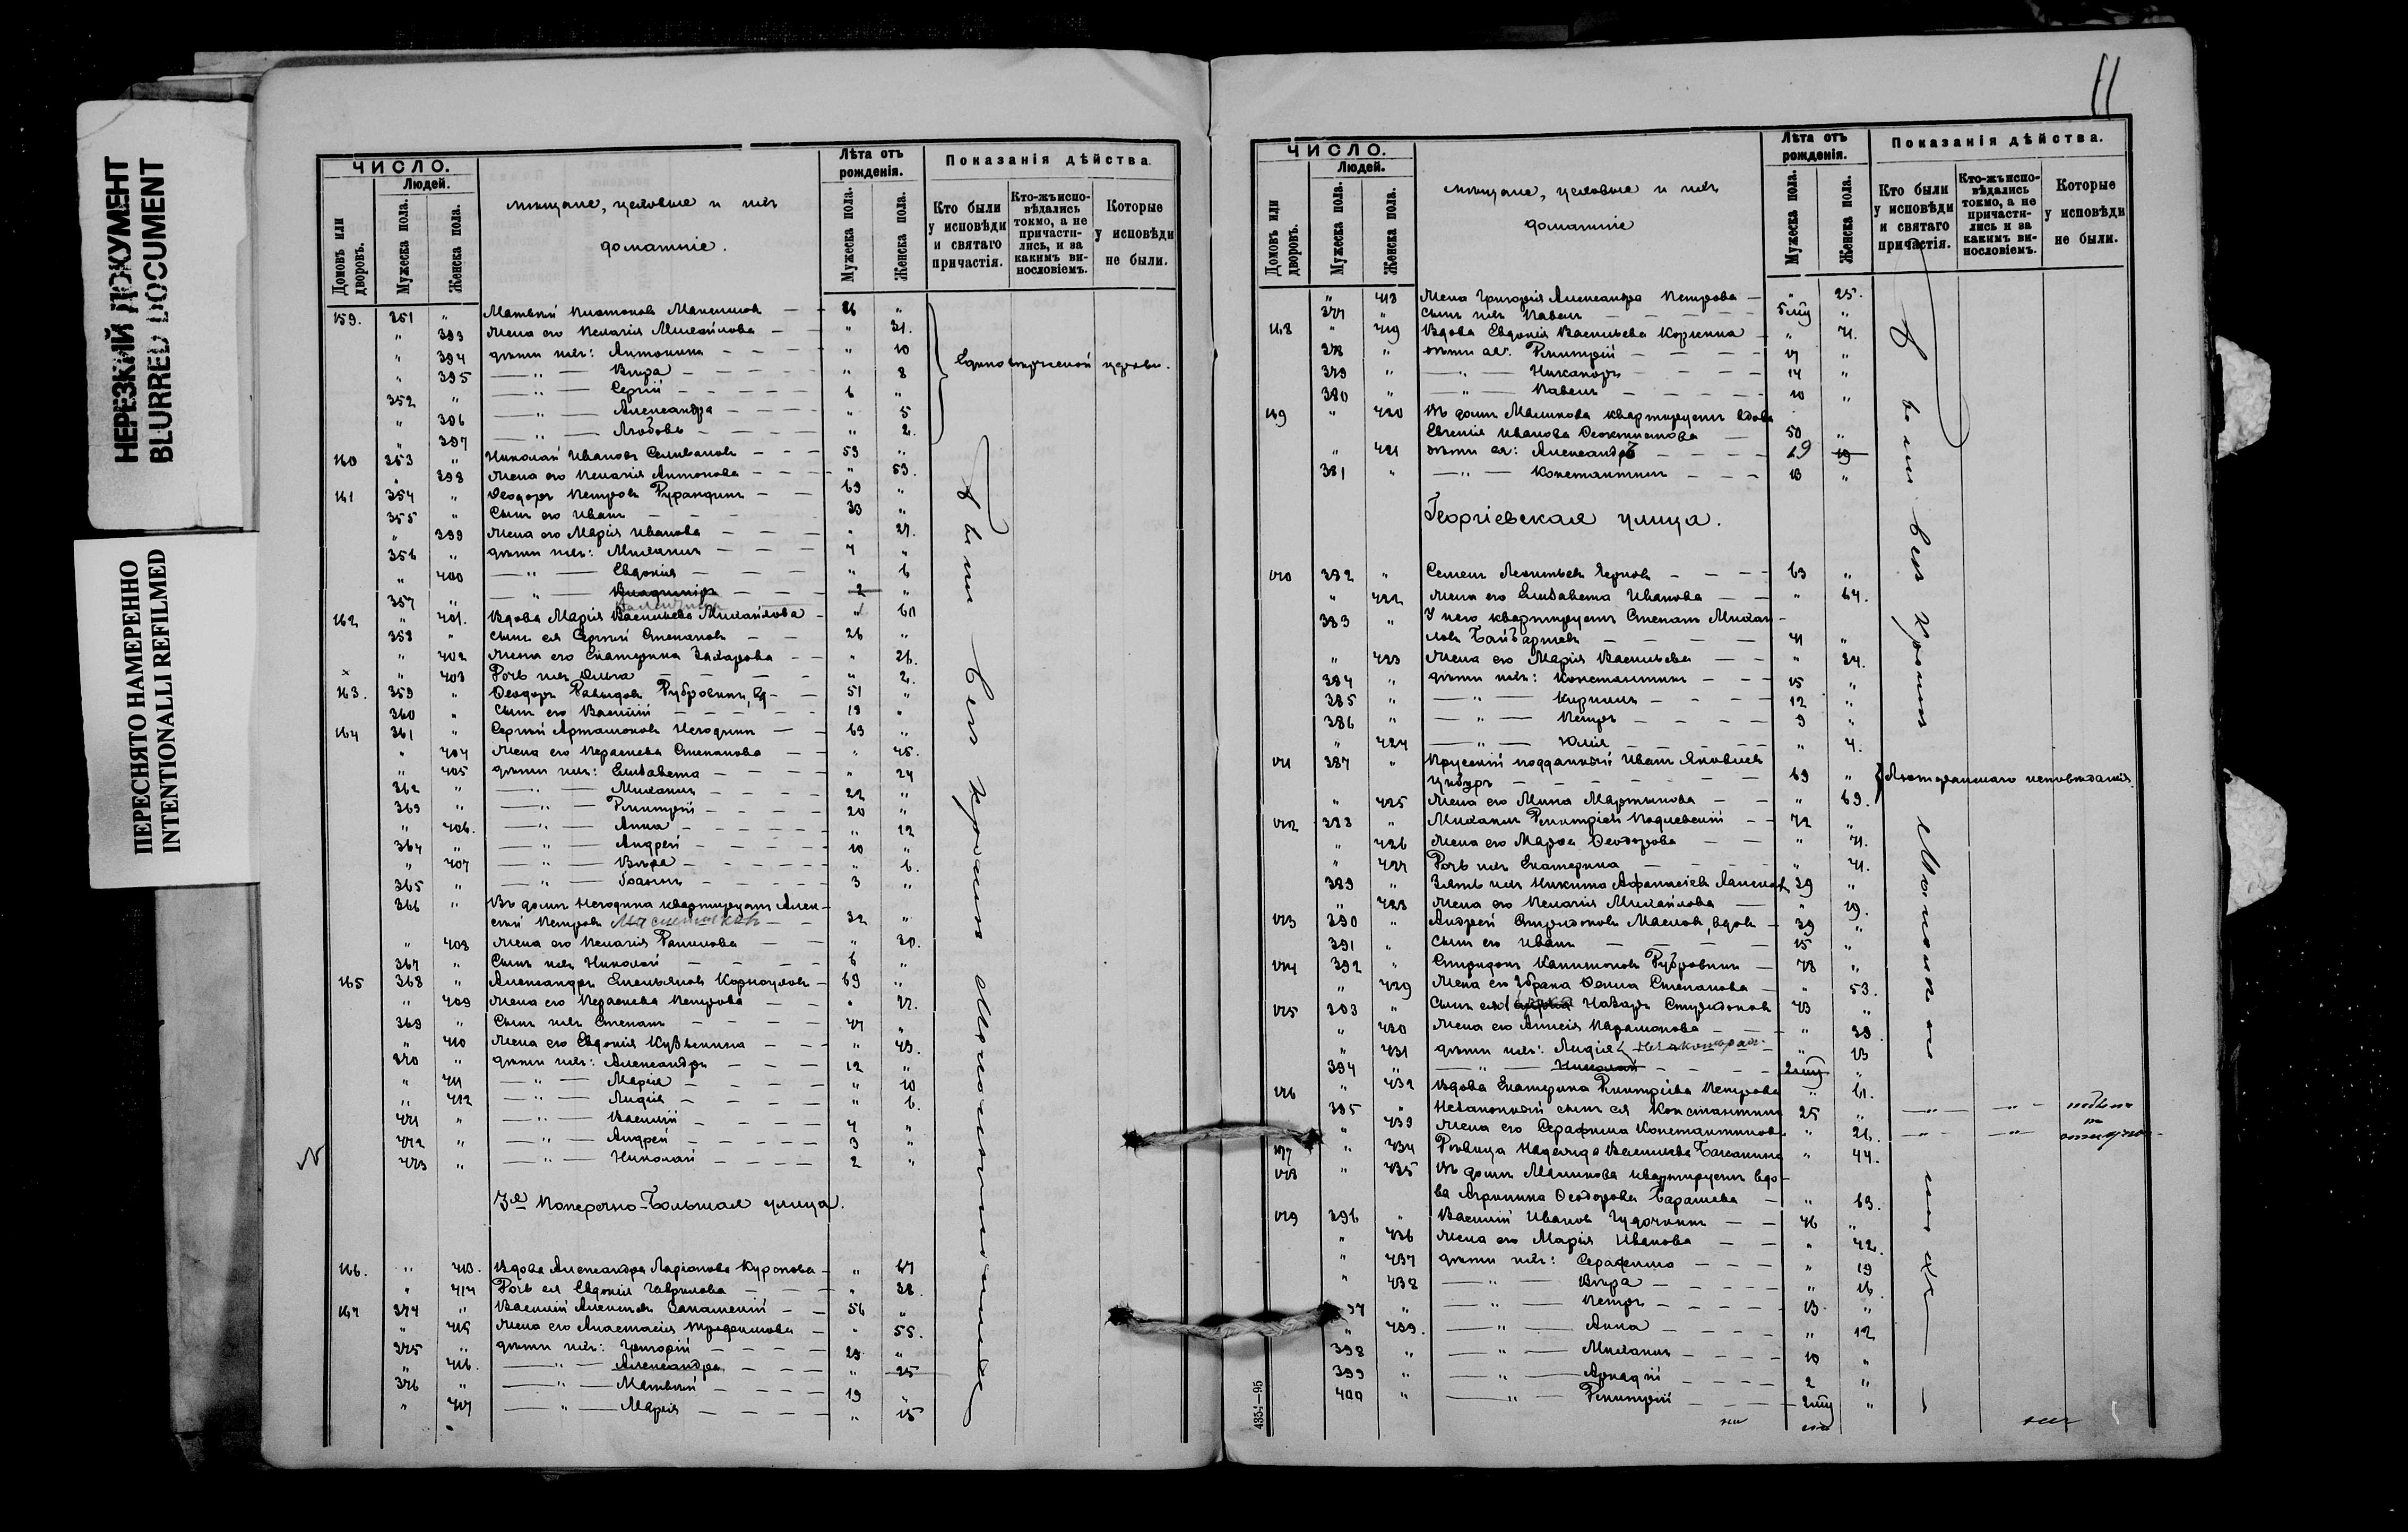 НЕРЕЗКИЙ ДОКУМЕНТ
BLURRED DOCUMENT
ПЕРЕСНЯТО НАМЕРЕННО
INTENTIONALLI REFILMED
ЧИСЛО.
Людей.
Домовъ или дворовъ.
Мужеска пола.
Женска пола.
мѣщане, цеховые и ихъ
домашніе.
Лѣта отъ рожденія.
Мужеска пола.
Женска пола.
Показанія дѣйства.
Кто были у исповѣди и святаго причастія.
Кто-жъ исповѣдались токмо, а не причастились, и за какимъ винословіемъ.
Которые у исповѣди не были.
159. 351 " Матвѣй Платоновъ " 
" 393 жена его Пелагія Михайлова — — " 31.
" 394 дѣти ихъ: Антонина — — — " 10
" 395 — " — Вѣра — — — " 8
352 " — " — Сергій — — — 6 "
" 396 — " — Александра — — — " 5
" 397 — " — Любовь — — — " 2.
Единовѣрческой церкви.
160 353 " Николай Ивановъ Селивановъ — — 53 "
" 398 жена его Пелагія Антонова — — " 53.
161 354 " Ѳеодоръ Петровъ — — 69 "
355 " Сынъ его Иванъ — — 33 "
" 399 жена его Марія Иванова — — " 27.
356 " дѣти ихъ: Михаилъ — — — 7 "
" 400 — " — Евдокія — — — " 6
357 " — " — Владиміръ — 2 "
162 " 401. Вдова Марія Васильева Михайлова — " 60
358 " сынъ ея Сергѣй Степановъ — — 26 "
" 402 жена его Екатерина Захарова — — " 26.
× " 403 Дочь ихъ Ольга — — " 2.
163. 359 " Ѳеодоръ Давыдовъ Дубровинъ, вд — 51 "
360 " Сынъ его Василій — — — 18 "
164 361 " Сергѣй Артамоновъ Негодинъ — — 63 "
" 404 жена его Параскева Степанова — — " 45.
" 405 дѣти ихъ: Елизавета — — — " 24
362 " — " — Михаилъ — — — 22 "
363 " — " — Димитрій — — — 20 "
" 406. — " — Анна — — — " 12
364 " — " — Андрей — — — 10 "
" 407 — " — Вѣра — — — " 6.
365 " — " — Іоаннъ — — — 3 "
366 " Въ домѣ Негодина квартируетъ Алек-
сѣй Петровъ — 32 "
" 408 жена его Пелагія Данилова — — " 30.
367 " Сынъ ихъ Николай — — — 6 "
165 368 " Александръ Емельяновъ Корноуховъ — 69 "
" 409 жена его Параскева Петрова — — " 72.
369 " Сынъ ихъ Степанъ — — — 47 "
" 410 жена его Евдокія Кузьмина — — " 43.
370 " дѣти ихъ: Александръ — — — 12 "
" 411 — " — Марія — — — " 10
" 412 — " — Лидія — — — " 6.
371 " — " — Василій — — — 4 "
372 " — " — Андрей — — — 3 "
373 " — " — Николай — — — 2 "
3я Поперечно-Большая улица.
166. " 413. Вдова Александра Ларіонова Курокова — " 67
" 414 Дочь ея Евдокія Гаврилова — — " 38.
167 374 " Василій Алексѣевъ Закамскій — — 56 "
" 415 жена его Анастасія Трофимова — " 55.
375 " дѣти ихъ: Григорій — — — 28 "
" 416. — " — Александра — — — " 25
376 " — " — Матвѣй — — — 19 "
" 417 — " — Марія — — — " 15
Были всѣ кромѣ малолѣтнихъ
11
ЧИСЛО.
Людей.
Домовъ или дворовъ.
Мужеска пола.
Женска пола.
мѣщане, цеховые и ихъ
домашніе
Лѣта отъ рожденія.
Мужеска пола.
Женска пола.
Показанія дѣйства.
Кто были у исповѣди и святаго причастія.
Кто-жъ исповѣдались токмо, а не причастились и за какимъ винословіемъ.
Которые у исповѣди не были.
" 418 жена Григорія Александра Петрова — " 25.
377 " сынъ ихъ Павелъ — — "
168 " 419 Вдова Евдокія Васильева — " 41.
378 " дѣти ея: Димитрій — — — 17 "
379 " — " — Никаноръ — — — 14 "
380 " — " — Павелъ — — — 10 "
169 " 420 Въ домѣ Маликова квартируетъ вдова
Евгенія Иванова Ѳеоктистова — 50 "
" 421 дѣти ея: Александръ — — — 19 19
381 " — " — Константинъ — — — 13 "
Георгіевская улица.
170 382 " Семенъ Леонтьевъ — — — 63 "
" 422 жена его Елизавета Иванова — — " 64.
383 " У него квартируетъ Степанъ Михай-
ловъ — — — 41 "
" 423 жена его Марія Васильева — — " 34.
384 " дѣти ихъ: Константинъ — — 15 "
385 " — " — Кириллъ — — — 12 "
386 " — " — Петръ — — — 9 "
" 424 — " — Юлія — — — " 4.
171 387 " Прусскій подданный Иванъ Яковлевъ
— — — 69 "
" 425 жена его Мина Мартынова — — " 69.
Лютеранскаго исповѣданія.
172 388 " Михаилъ Димитріевъ — — 72 "
" 426 жена его Марѳа Ѳеодорова — — " 71.
" 427 Дочь ихъ Екатерина — — — " 41.
389 " Зять ихъ Никита Аѳанасіевъ 39 "
" 428 жена его Пелагія Михайлова — " 19.
173 390 " Андрей Спиридоновъ Масловъ, вдовъ — 39 "
391 " сынъ его Иванъ — — — 15 "
174 392 " Спиридонъ Капитоновъ Дубровинъ — 78 "
" 429 жена его 2 брака Ѳекла Степанова — " 53.
175 393 " Сынъ его Назаръ Спиридоновъ 43 "
" 430 жена его Анисія Парамонова — — " 38
" 431 дѣти ихъ: Лидія " 13
394 " — " — Николай — — "
176 " 432 Вдова Екатерина Димитріева Петрова " 61.
395 " Незаконный сынъ ея Константинъ 25 " — " — — " —
" 433 жена его Серафима Константинова " 21. — " — — " —
177 " 434 Дѣвица Надежда Васильева " 44.
178 " 435 Въ домѣ Маликова квартируетъ вдо-
ва Агриппина Ѳеодорова Барашева — " 63.
179 396 " Василій Ивановъ — — 46 "
" 436 жена его Марія Иванова — — " 42.
" 437 дѣти ихъ: Серафима — — — " 19
" 438 — " — Вѣра — — — " 16.
97 " — " — Петръ — — — 13. "
" 439. — " — Анна — — — " 12
398 " — " — Михаилъ — — — 10 "
399 " — " — Аркадій — — — 2 "
400 " — " — Димитрій — — — "
Были всѣ кромѣ малолѣтнихъ
4354—95